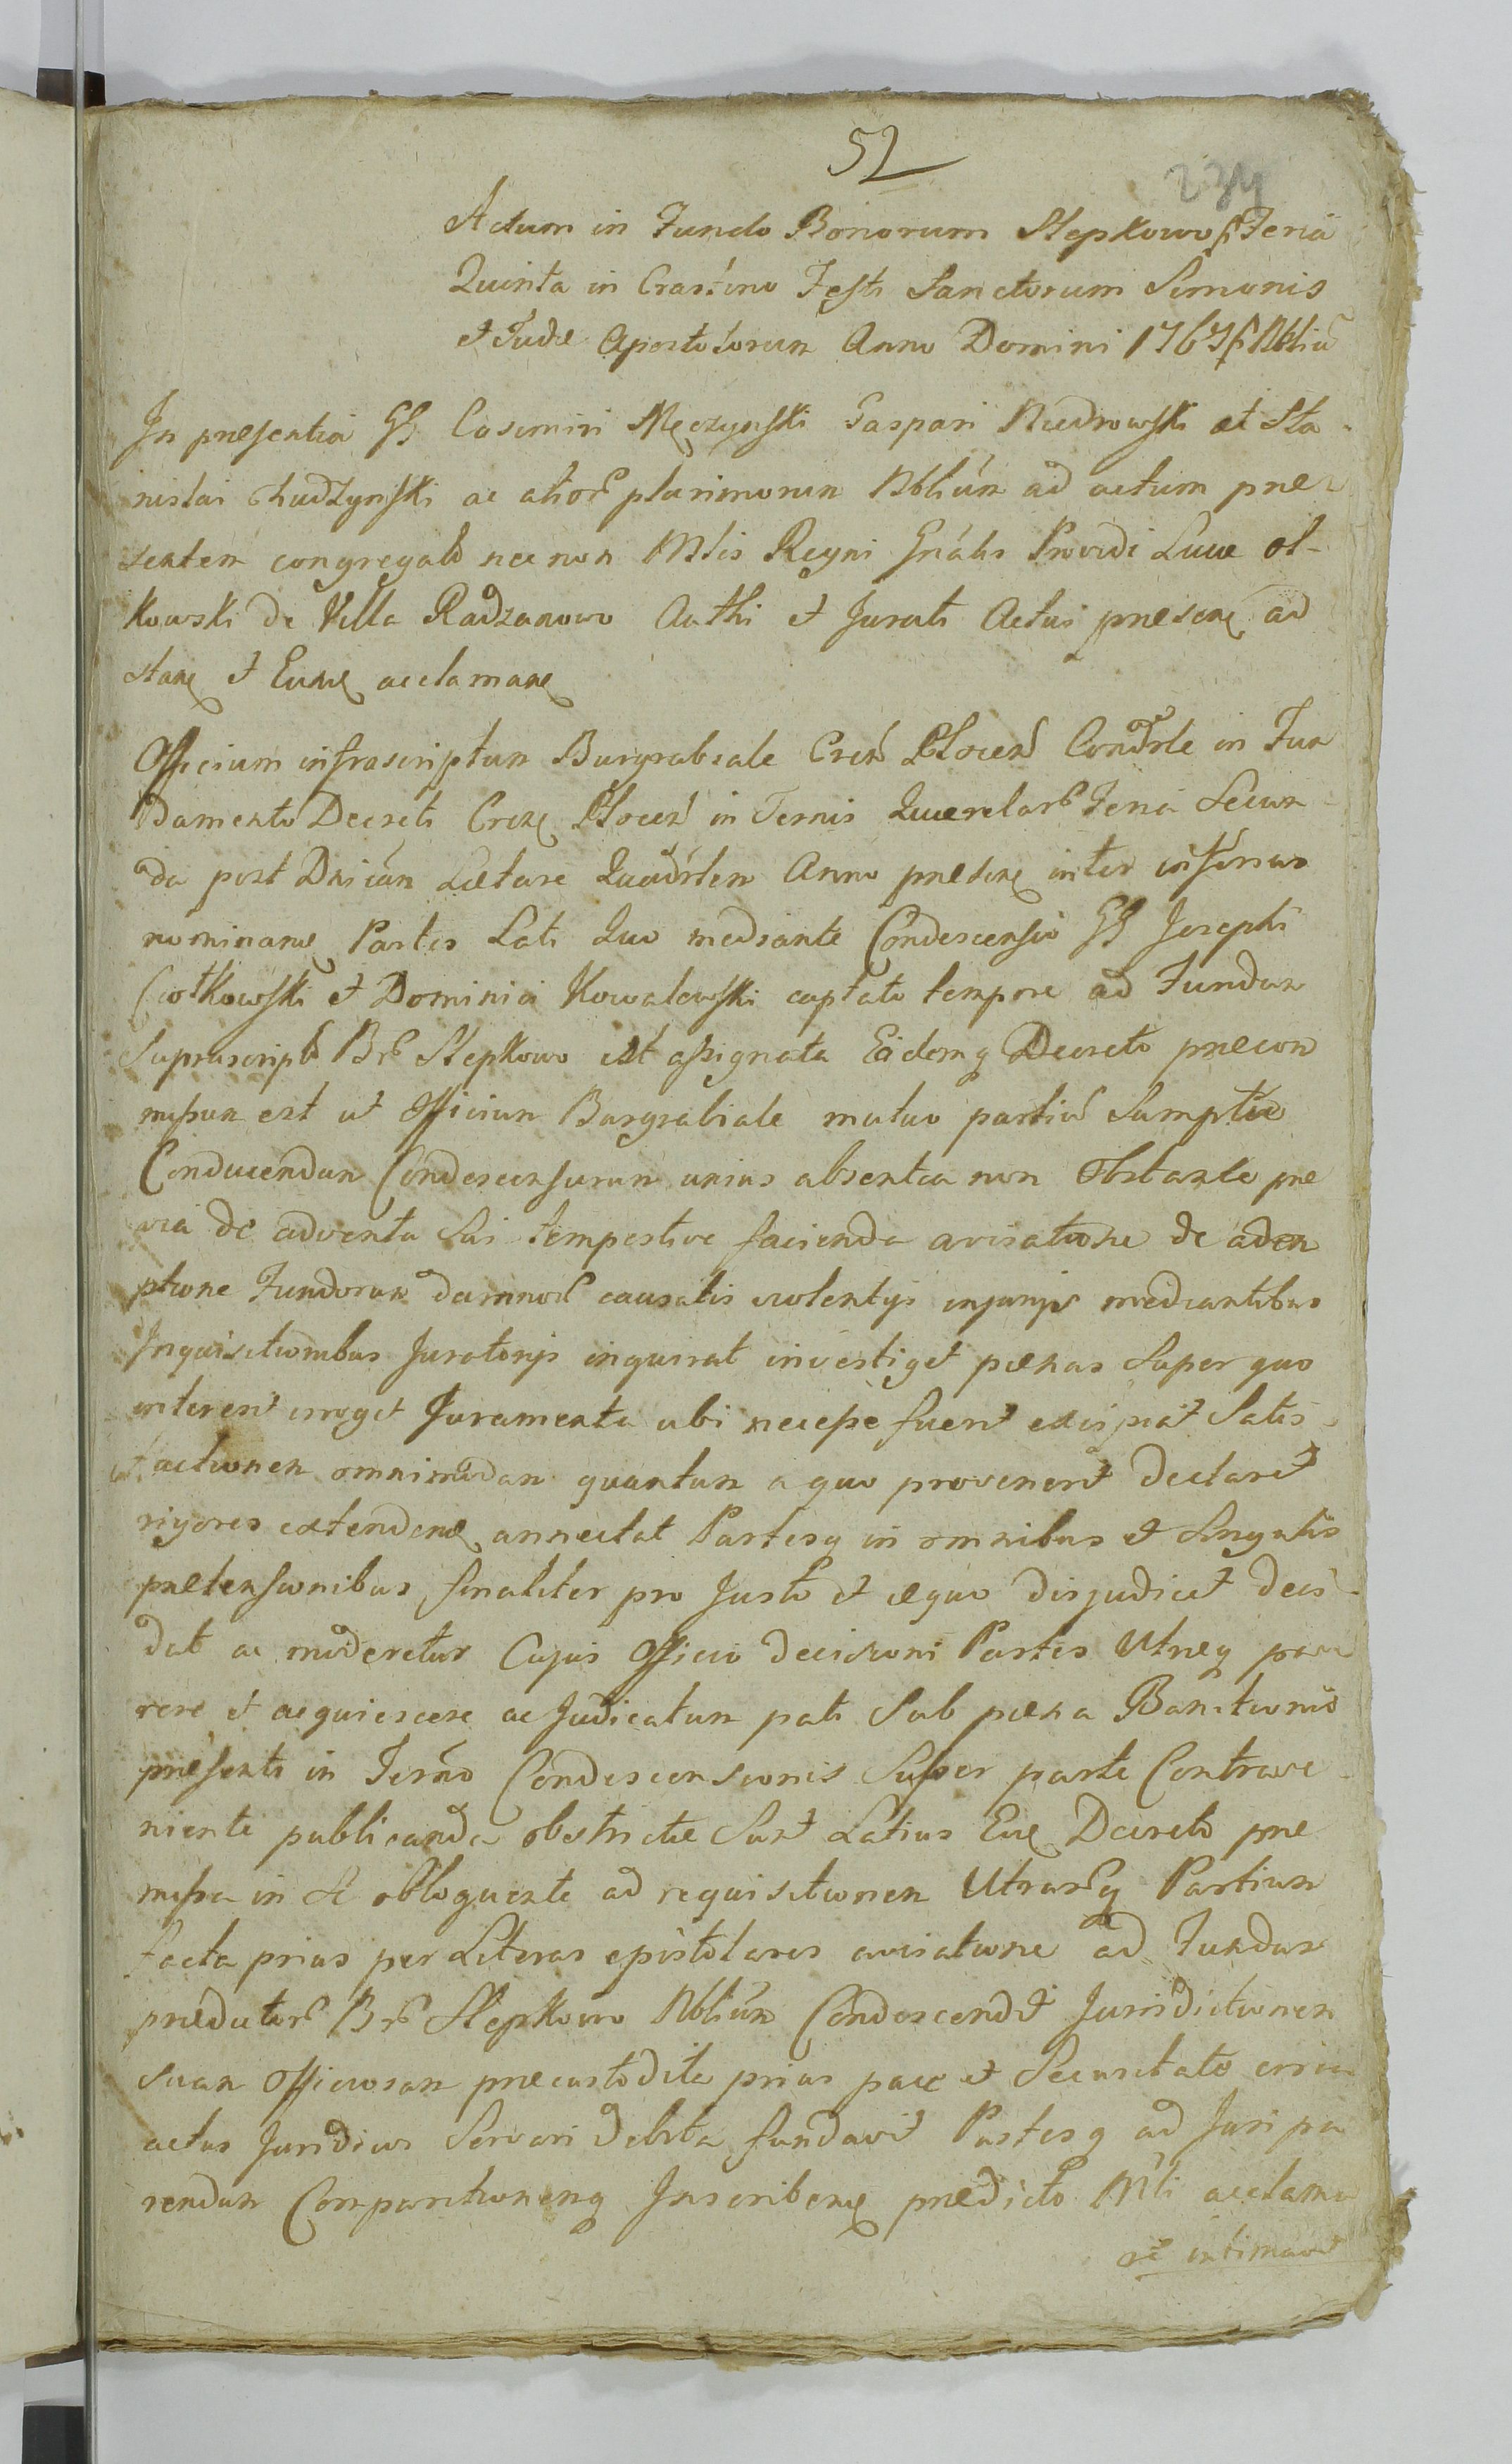 52
234
Actum in Fundo Bonorum Slepkowo ß Feria
Quinta in Crastino Festi Sanctorum Simonis
et Judæ Apostolorum Anno Domini 1767 ß Nbliũ
In præsentia GG Casimiri Męczynski Gaspari Niedrowski et Sta-
nislai Chudzynski ac alior plurimorum Nbliũm ad actum præ-
sentem congregat nec non Mlis Regni Gnalis Providi Lucæ Ol-
kowski de Villa Radzanowo Authi et Jurati Actui præsene ad
stane et Eune acclamane
Officium infrascriptum Burgrabiale Cren Plocen Condẽrle in Fun
damento Decreti Crene Plocen in Ternis Querelar Feria Secun-
da post Dnicam Lætare Quadrlem Anno præsene inter inferius
nominane Partes Lati Quo mediante Condescensio GG Josephi
Ciołkowski et Dominici Kowalewski captato tempore ad Fundum
Suprascript Br Slepkowo est assignata Eidemq Decreto præcon
missum est ut Officium Burgrabiale mutuo partiũ Sumptũe
Conducendum Condescensurum unius absentia non Obstante præ
via de adventu Sui tempestive facienda avisatione de adem
ptione Fundorum damnor causatis violentijs injurijs mediantibus
Inquisitionibus Juratorijs inquirat investiget pænas Super quo
intererit irroget Juramenta ubi necesse fuerit excipiat Satis-
factionem omnimodam quantum a quo provenerit declaret
rigores extendene annectat Partesq in omnibus et Singulis
prætensionibus finaliter pro Justo et æquo disjudicet deci-
dat ac moderetur Cujus Officio decisioni Partes Utræq pa
rere et acquiescere ac Judicatum pati Sub pæna Banitionis
præsenti in Termno Condescensionis Super parte Contrave-
nienti publicanda obstrictæ Sunt Latius Eue Decreto præ
missa in Se obloquente ad requisitionem Utrarq Partium
facta prius per Literas epistolares avisatione ad Fundum
prædictor Br Slepkowo Nbliũm Condescendit Jurisdictionem
Suam Officiosam præcustodita prius pace et Securitate circa
actus Juridicos Servari debita fundavit Partesq ad Juri pa
rendum Comparitionemq Inscribene prædicto Mli acclama
re intimavit